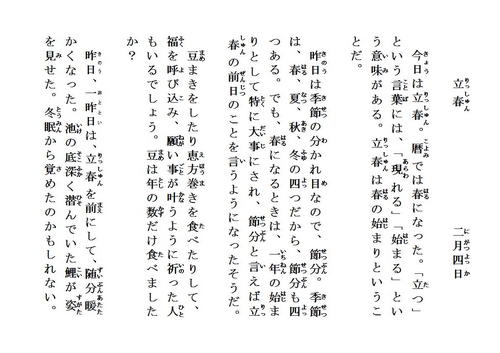 立春　二月四日
今日は立春。暦では春になった。「立つ」
という言葉には、「現れる」「始まる」とい
う意味がある。立春は春の始まりというこ
とだ。
昨日は季節の分かれ目なので、節分。季節
は、春、夏、秋、冬の四つだから、節分も四
つある。でも、春になるときは、一年の始ま
りとして特に大事にされ、節分と言えば立
春の前日のことを言うようになったそうだ。
豆まきをしたり恵方巻きを食べたりして、
福を呼び込み、願い事が叶うように祈った人
もいるでしょう。豆は年の数だけ食べました
か？
昨日、一昨日は、立春を前にして、随分暖
かくなった。池の底深く潜んでいた鯉が姿
を見せた。冬眠から覚めたのかもしれない。